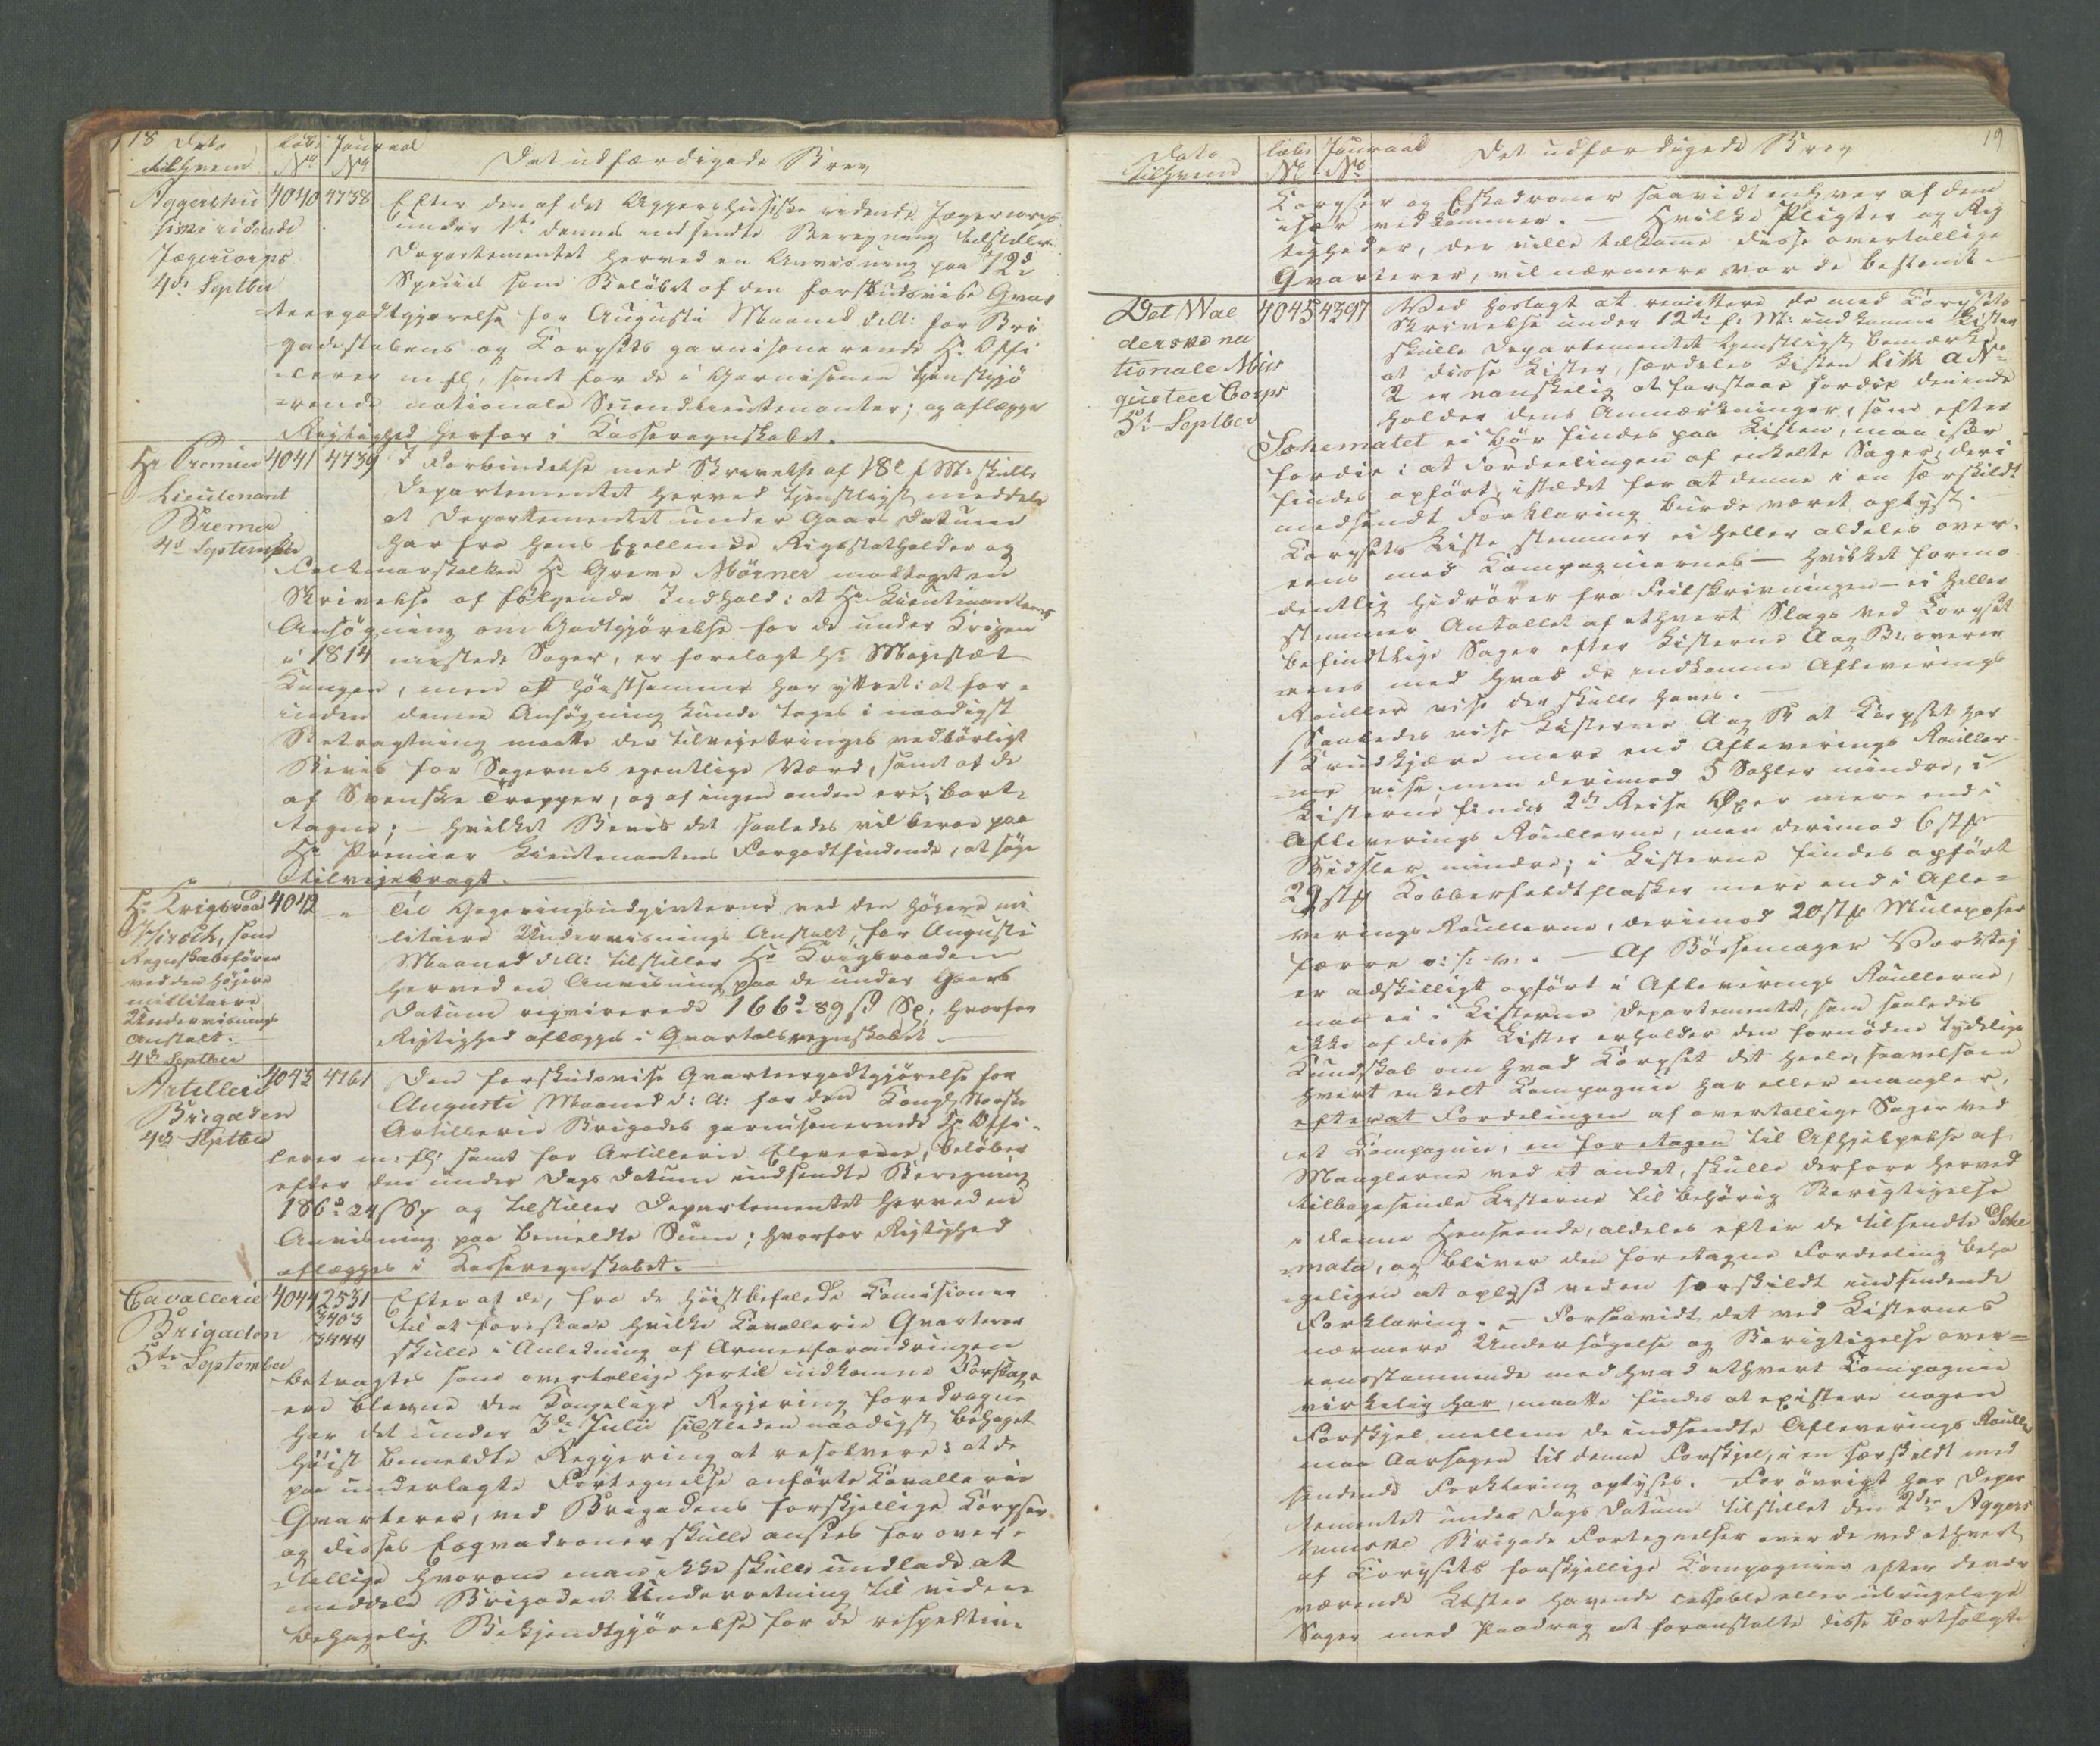 18 Dato
tilHvem
Løbe
No
Journal
No
Det udfærdigede Brev
Aggershu
siske ridende
Jægercorps
4de Septber
4040 4738
Efter den af det Aggershusiske ridende Jægercorps
under 1ste dennes indsendte Beregning tilstiller
Departementet herved en Anvisning paa 72d
Species som Beløbet af den forskudsvise Qvar
teergodtgjørelse for Augusti Maaned d. A: for Bri
gadestabens og Corpsets garnisonerende Hr Offi
cerer m fl, samt for de i Garnisonen tjenstgjø
rende nationale Secondlieutenanter; og aflægges
Rigtighed herfor i Casseregnskabet.
Hr Premier
Lieutenant
Bremer
4de September
4041 4739
I Forbindelse med Skrivelse af 18e f. M: skulle
Departementet herved tjenstligst meddele
at Departementet under Gaars Datum
har fra Hans Excellence Rigsstatholder og
Feltmarskalken Hr Greve Mörner modtaget en
Skrivelse af følgende Indhold: at Hr Lieutenantens
Ansøgning om Godtgjørelse for de under Krigen
i 1814 mistede Sager, er forelagt Hs Majestæt
Kongen, men at Høistsamme har yttret: at for-
inden denne Ansøgning kunde tages i naadigst
Betragtning maatte der tilvejebringes vedbørligt
Beviis for Sagernes egentlige Værd, samt at de
af Svenske Tropper, og af ingen anden ere bort-
tagne; - hvilket Beviis det saaledes vil beroe paa
Hr Premier Lieutenantens Forgodtfindende, at søge
tilvejebragt.
Hr Krigsraad
Hirsch, som
Regnskabsfører
ved den højere
militaire
Undervisnings
Anstalt.
4de Septber
4042 -
Til Gageringsudgivterne ved den højere mi
litaire Undervisnings Anstalt, for Augusti
Maaned d. A: tilstilles Hr Krigsraaden
herved en Anvisning paa de under Gaars
Datum reqvirerede 166d 89 s Sp. hvorfor
Rigtighed aflægges i Qvartalsregnskabet.
Artilleri
Brigaden
4de Septber
4043 4761
Den forskudsvise Qvarteergodtgjørelse for
Augusti Maaned d: A: for den Kongl Norske
Artillerie Brigades garnisonerende Hr Offi-
cerer m: fl: samt for Artillerie Eleverne, beløber
efter den under Dags Datum indsendte Beregning
186d 24 s Sp og tilstiller Departementet herved en
Anvisning paa bemeldte Sum; hvorfor Rigtighed
aflægges i Casseregnskabet.
Cavallerie
Brigaden
5te September
4044 2531
3403
3444
Efterat de, fra de høistbefalede Comissioner
til at foreslaae hvilke Cavallerie Qvarterer
skulle i Anledning af Armeeforandringen
betragtes som overtallige hertil indkomne Forslage
ere blevne den Kongelige Regjering foredragne
har det under 3de Julii sidstleden naadigst behaget
høist bemeldte Regjering at resolvere: at de
paa underlagte Fortegnelse anførte Cavallerie
Qvarterer, ved Brigadens forskjellige Corpser
og disses Esqvadroner skulle ansees for over-
tallige hvorom man ikke skulle undlade at
meddele Brigaden Underretning til videre
behagelig Bekjendtgjørelse for de respektive
19
Dato
tilHvem
Løbe
No
Journal
No
Det udfærdigede Brev
Corpser og Eskadroner saavidt enhver af dem
især vedkommer. - Hvilke Pligter og Rig
tigheder, der ville tilkomme disse overtallige
Qvarterer, vil nærmere vorde bestemt. -
Det Wal
derske na
tionale Mus
queteer Corps
5te Septber
4045 4397
Ved hoslagt at remittere de med Corpsets
Skrivelse under 12te f. M: indkomne Lister
skulle Departementet tjenstligst bemærke
at disse Lister, særdeles Listen Litr a No
2 er vanskelig at forstaae fordie den inde
holder dens Anmærkninger, som efter
Schematet ei bør findes paa Listen, maa især
fordie: at Fordeelingen af enkelte Sager, deri
findes opført, istædet for at denne i en særskildt
medsendt Forklaring burde været oplyst.
Corpsets Liste stemmer ei heller aldeles over-
eens med Compagniernes - hvilket formo
dentlig hidrører fra Feilskrivningen - ei heller
stemmer Antallet af ethvert Slags ved Corpset
befindtlige Sager efter Listerne A og B: overeen
eens med hvad de indkomne Afleverings
Rouller vise der skulle haves. -
Saaledes vise Listerne A og B at Corpset har
1 Krudkjære mere end Afleverings Rouller-
ne vise, men derimod 5 Sahler mindre, i
Listerne findes 2de Reise Øxer mere end i
Afleverings Roullerne, men derimod 6 stk
Bidsler mindre; i Listerne findes opført
29 stk Kobberfeldtflasker mere end i Afle-
verings Roullerne, derimod 20 stk Muleposer
færre o: s: v: . - Af Børsemager Værktøj
er adskilligt opført i Afleverings Roullerne,
men ei i Listerne Departementet, som saaledes
ikke af disse Lister erholder den fornødne tydelige
Kundskab om hvad Corpset det heele, saavelsom
hvert enkelt Compagnie har eller mangler,
efterat Fordelingen af overtallige Sager ved
et Compagnie, en foretagen til Afhjelpelse af
Manglerne ved et andet, skulle derfore herved
tilbagesende Listerne til behørig Berigtigelse
i denne Henseende, aldeles efter de tilsendte Sche
mata, og bliver den foretagne Fordeeling beha
geligen at oplyse ved en særskildt indsendende
Forklaring. - Forsaavidt det ved Listernes
nærmere Undersøgelse og Berigtigelse over-
eensstemmende med hvad ethvert Compagnie
virkelig har, maatte findes at existere nogen
Forskjel mellem de indsendte Afleverings Rouller
maa Aarsagen til denne Forskjel, i en særskildt med
sendende Forklaring oplyses. For øvrigt har Depar
tementet under Dags Datum tilstillet den 2den Aggers
huusske Brigade Fortegnelser over de ved ethvert
af Corpsets forskjellige Compagnier efter deres
værende Lister havende cassable eller ubrugelige
Sager med Paadrag at foranstalte disse bortsolgte